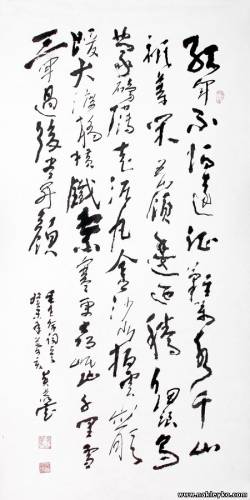 紅軍不怕遠征難萬水千山
祇等閑五嶺逶迤騰細浪烏
蒙磅礴走泥丸金沙水拍雲崖
暖大渡橋橫鐵索寒更喜岷山千里雪
三軍過後盡開顏